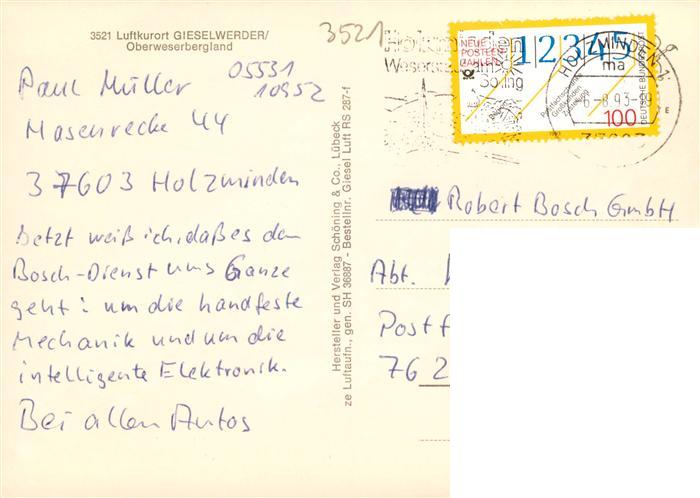 3521 Luftkurort GIESELWERDER/
Oberweserbergland
3521
Paul Müller 05531
10952
Masenrecke 44
37603 Holzminden
Jetzt weiß ich, daß es dem
Bosch-Dienst ums Ganze
geht: um die handfeste
Mechanik und um die
intelligente Elektronik.
Bei allen Autos
Hersteller und Verlag Schöning & Co., Lübeck
ze Luftaufn., gen. SH 36887 - Bestellnr. Giesel Luft RS 287-f
Solling
NEUE
POSTLEIT
ZAHLEN
12345
100
DEUTSCHE BUNDESPOST
HOLZMINDEN 1
ma
-6.-8.93-
Robert Bosch GmbH
Abt.
Postf
762